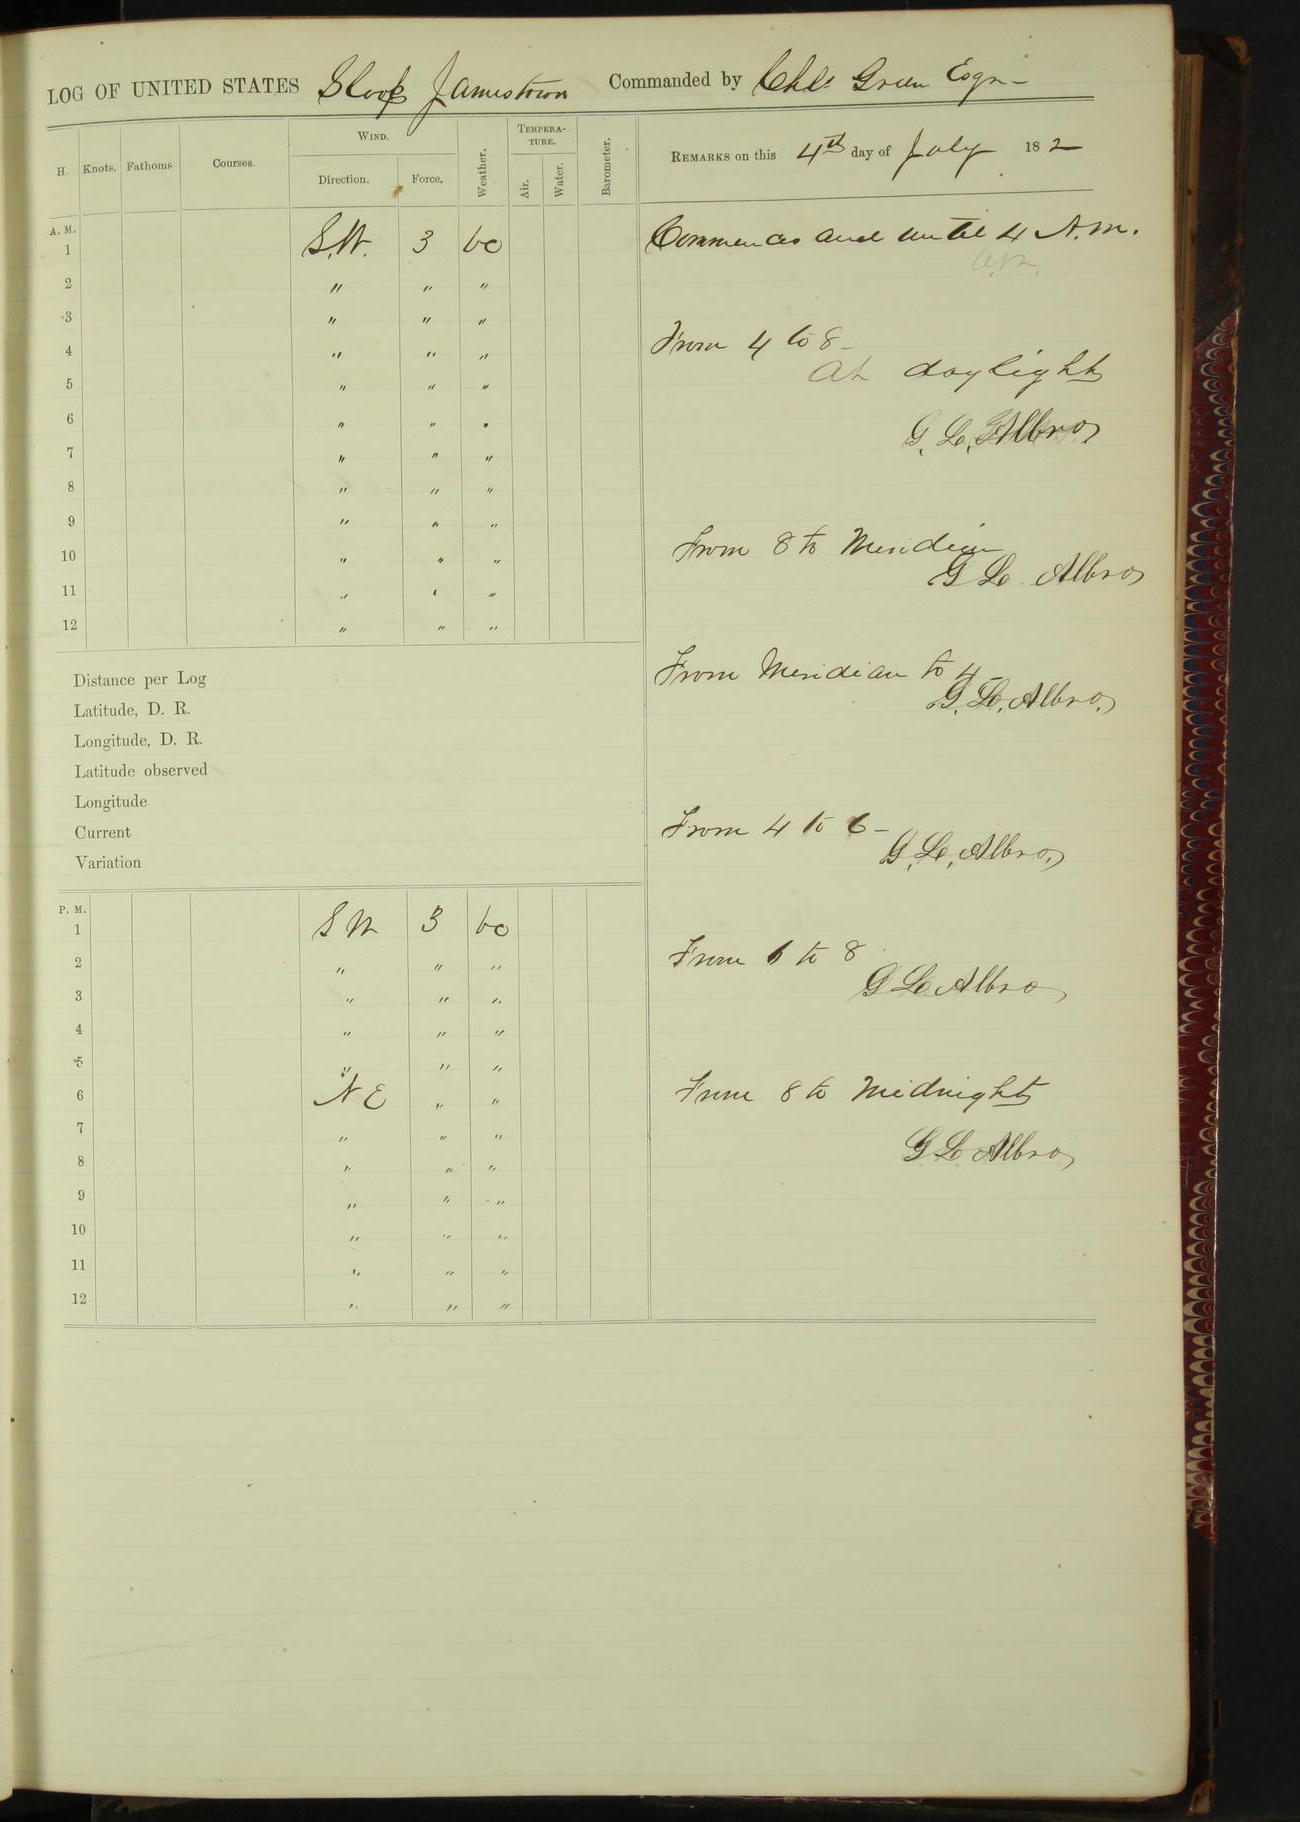 LOG OF UNITED STATES Sloop Jamestown Commanded by Chls Green Esqr-
H. Knots. Fathoms Courses. WIND. Direction. Force. Weather. TEMPERATURE. Air. Water. Barometer. REMARKS on this 4th day of July 18 2
A. M.
1 S.W. 3 bc Commences and until 4 A.M.
2 " " "
3 " " "
From 4 to 8-
4 " " "
At daylight
5 " " "
6 " " "
G. L. Albro
7 " " "
8 " " "
9 " " "
From 8 to Meridian
10 " " "
G L Albro
11 " " "
12 " " "
From Meridian to 4-
Distance per Log
G. L. Albro.
Latitude, D. R.
Longitude, D. R.
Latitude observed
Longitude
From 4 to 6-
Current
G. L. Albro.
Variation
P. M.
1 S W 3 bc
From 6 to 8
2 " " "
G L Albro
3 " " "
4 " " "
5 " " "
6 N E " "
From 8 to Midnight
7 " " "
G L Albro
8 " " "
9 " " "
10 " " "
11 " " "
12 " " "